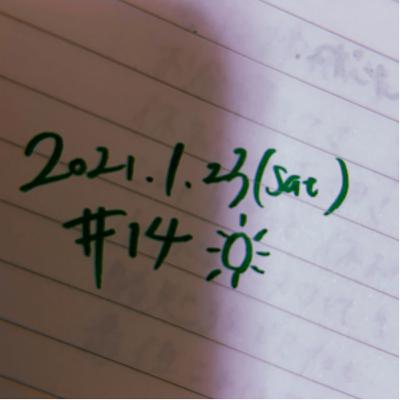 2021.1.23(Sat)
#14